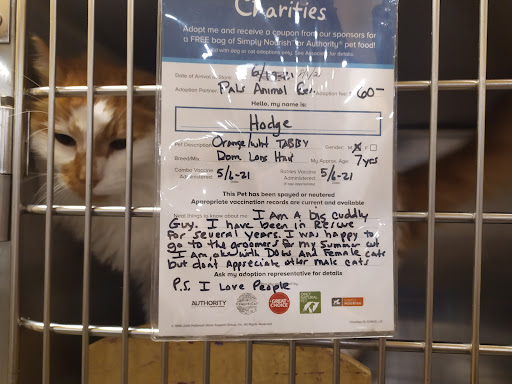 Charities
Adopt me and receive a coupon from our sponsors for
a FREE bag of Simply Nourish or Authority pet food!
Valid with dog or cat adoptions only. See Associate for details.
Date of Arrival in Store
Adoption Partner Pals Animal Adoption Fee $ 60-
Hello, my name is:
Hodge
Pet Description Orange/wht TABBY Gender: M F
Breed/Mix Dom Long Hair My Approx. Age: 7 yrs
Combo Vaccine Administered 5/6-21 Rabies Vaccine Administered 5/6-21
This Pet has been spayed or neutered
Appropriate vaccination records are current and available
Neat things to know about me: I Am A big cuddly
Guy. I have been in Rescue
for several years. I was happy to
go to the groomers for my summer cut
I am oke with Dogs and Female cats
but dont Appreciate other male cats
Ask my adoption representative for details
P.S. I Love People
AUTHORITY
GREAT CHOICE